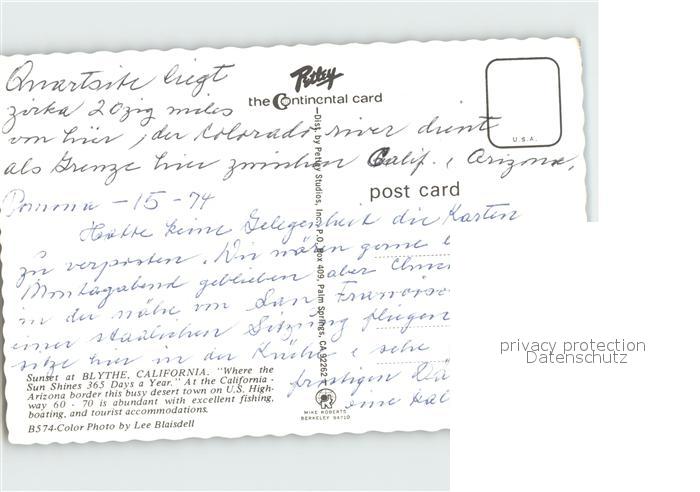 Quartsite liegt
zirka 20zig miles
von hier, der Colorado river dient
als Grenze hier zwischen Calif. , Arizona,
Petley
the Continental card
U.S.A.
post card
Dist. by Petley Studios, Inc., P.O. Box 409, Palm Springs, CA 92262
Pomona - 15 - 74
Hatte keine Gelegenheit die Karten
zu verposten. Wir wären gerne
Montagabend geblieben aber
in der nähe von San Francisco
einer staatlichen Sitzung fliegen
sitze hier in der Küche
frostigen
eine
Sunset at BLYTHE, CALIFORNIA. "Where the
Sun Shines 365 Days a Year." At the California -
Arizona border this busy desert town on U.S. High-
way 60 - 70 is abundant with excellent fishing,
boating, and tourist accommodations.
B574-Color Photo by Lee Blaisdell
MIKE ROBERTS
BERKELEY 94710
privacy protection
Datenschutz